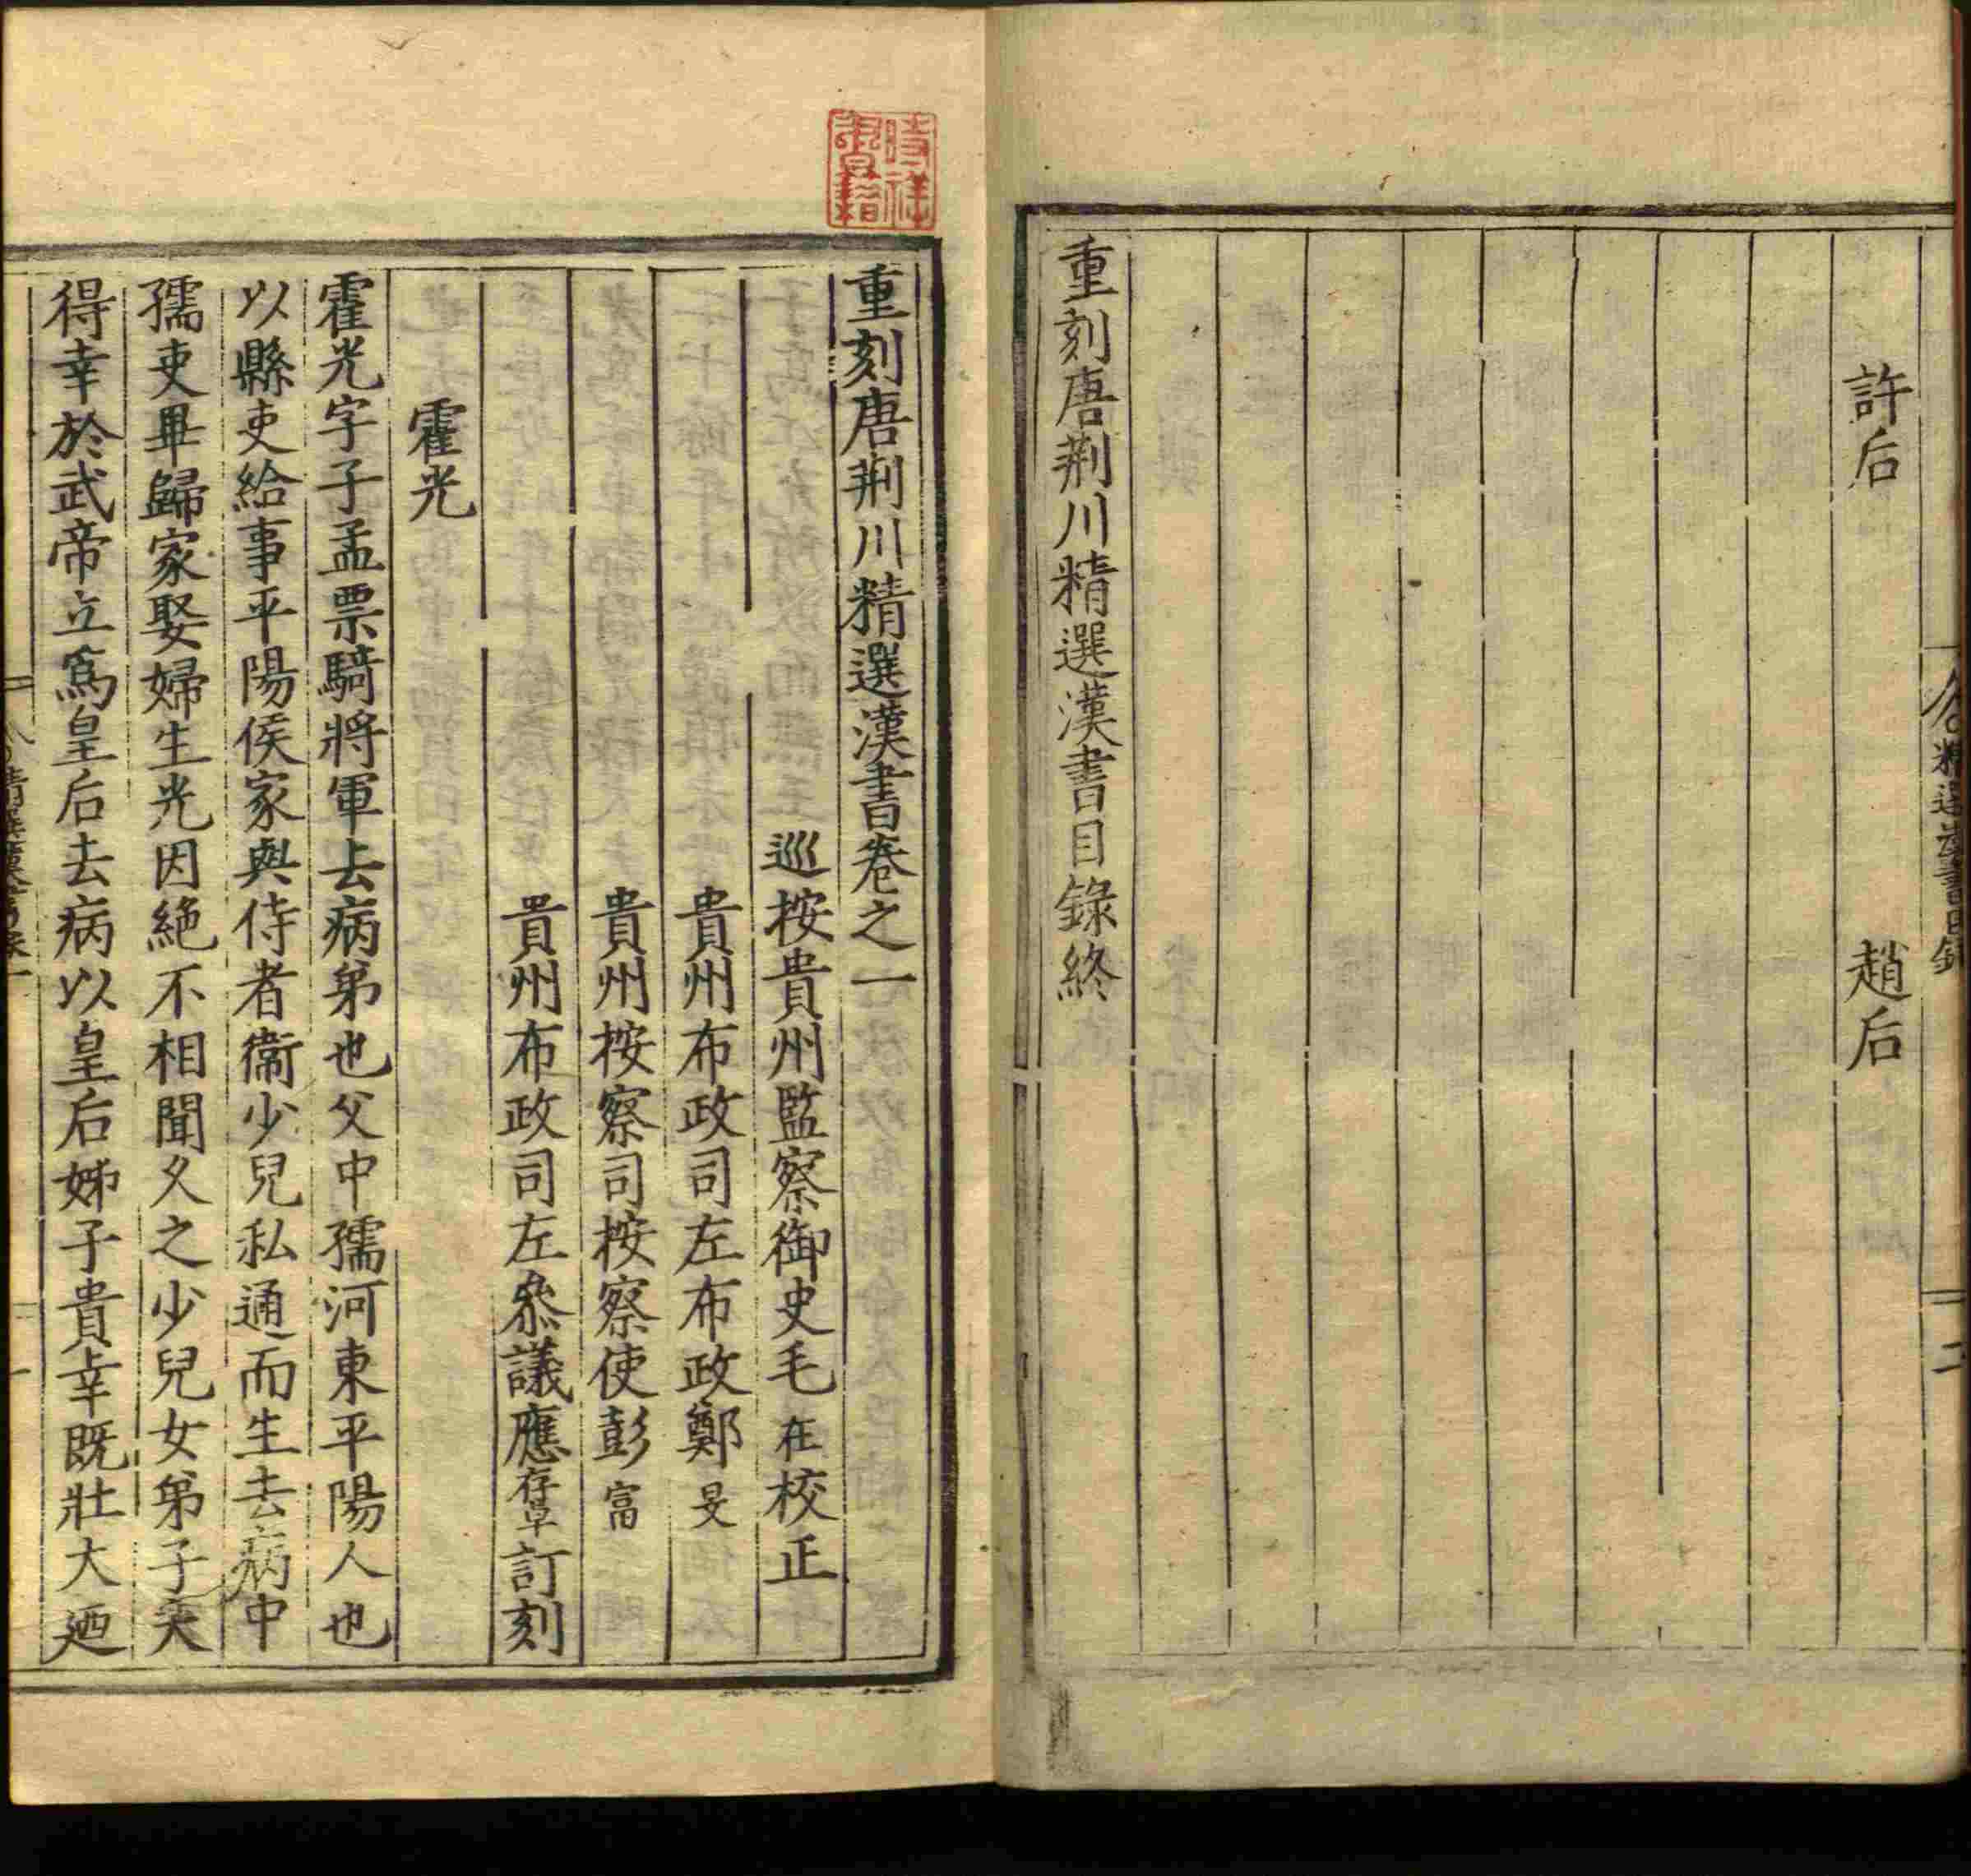 許后　趙后
重刻唐荆川精選漢書目錄終
重刻唐荆川精選漢書卷之一
巡按貴州監察御史毛在校正
貴州布政司左布政鄭旻
貴州按察司按察使彭富
貴州布政司左叅議應存卓訂刻
霍光
霍光字子孟票騎將軍去病弟也父中孺河東平陽人也
以縣吏給事平陽侯家與侍者衞少兒私通而生去病中
孺吏畢歸家娶婦生光因絶不相聞久之少兒女弟子夫
得幸於武帝立爲皇后去病以皇后姊子貴幸既壯大廼
精選漢書目錄
二
時祥